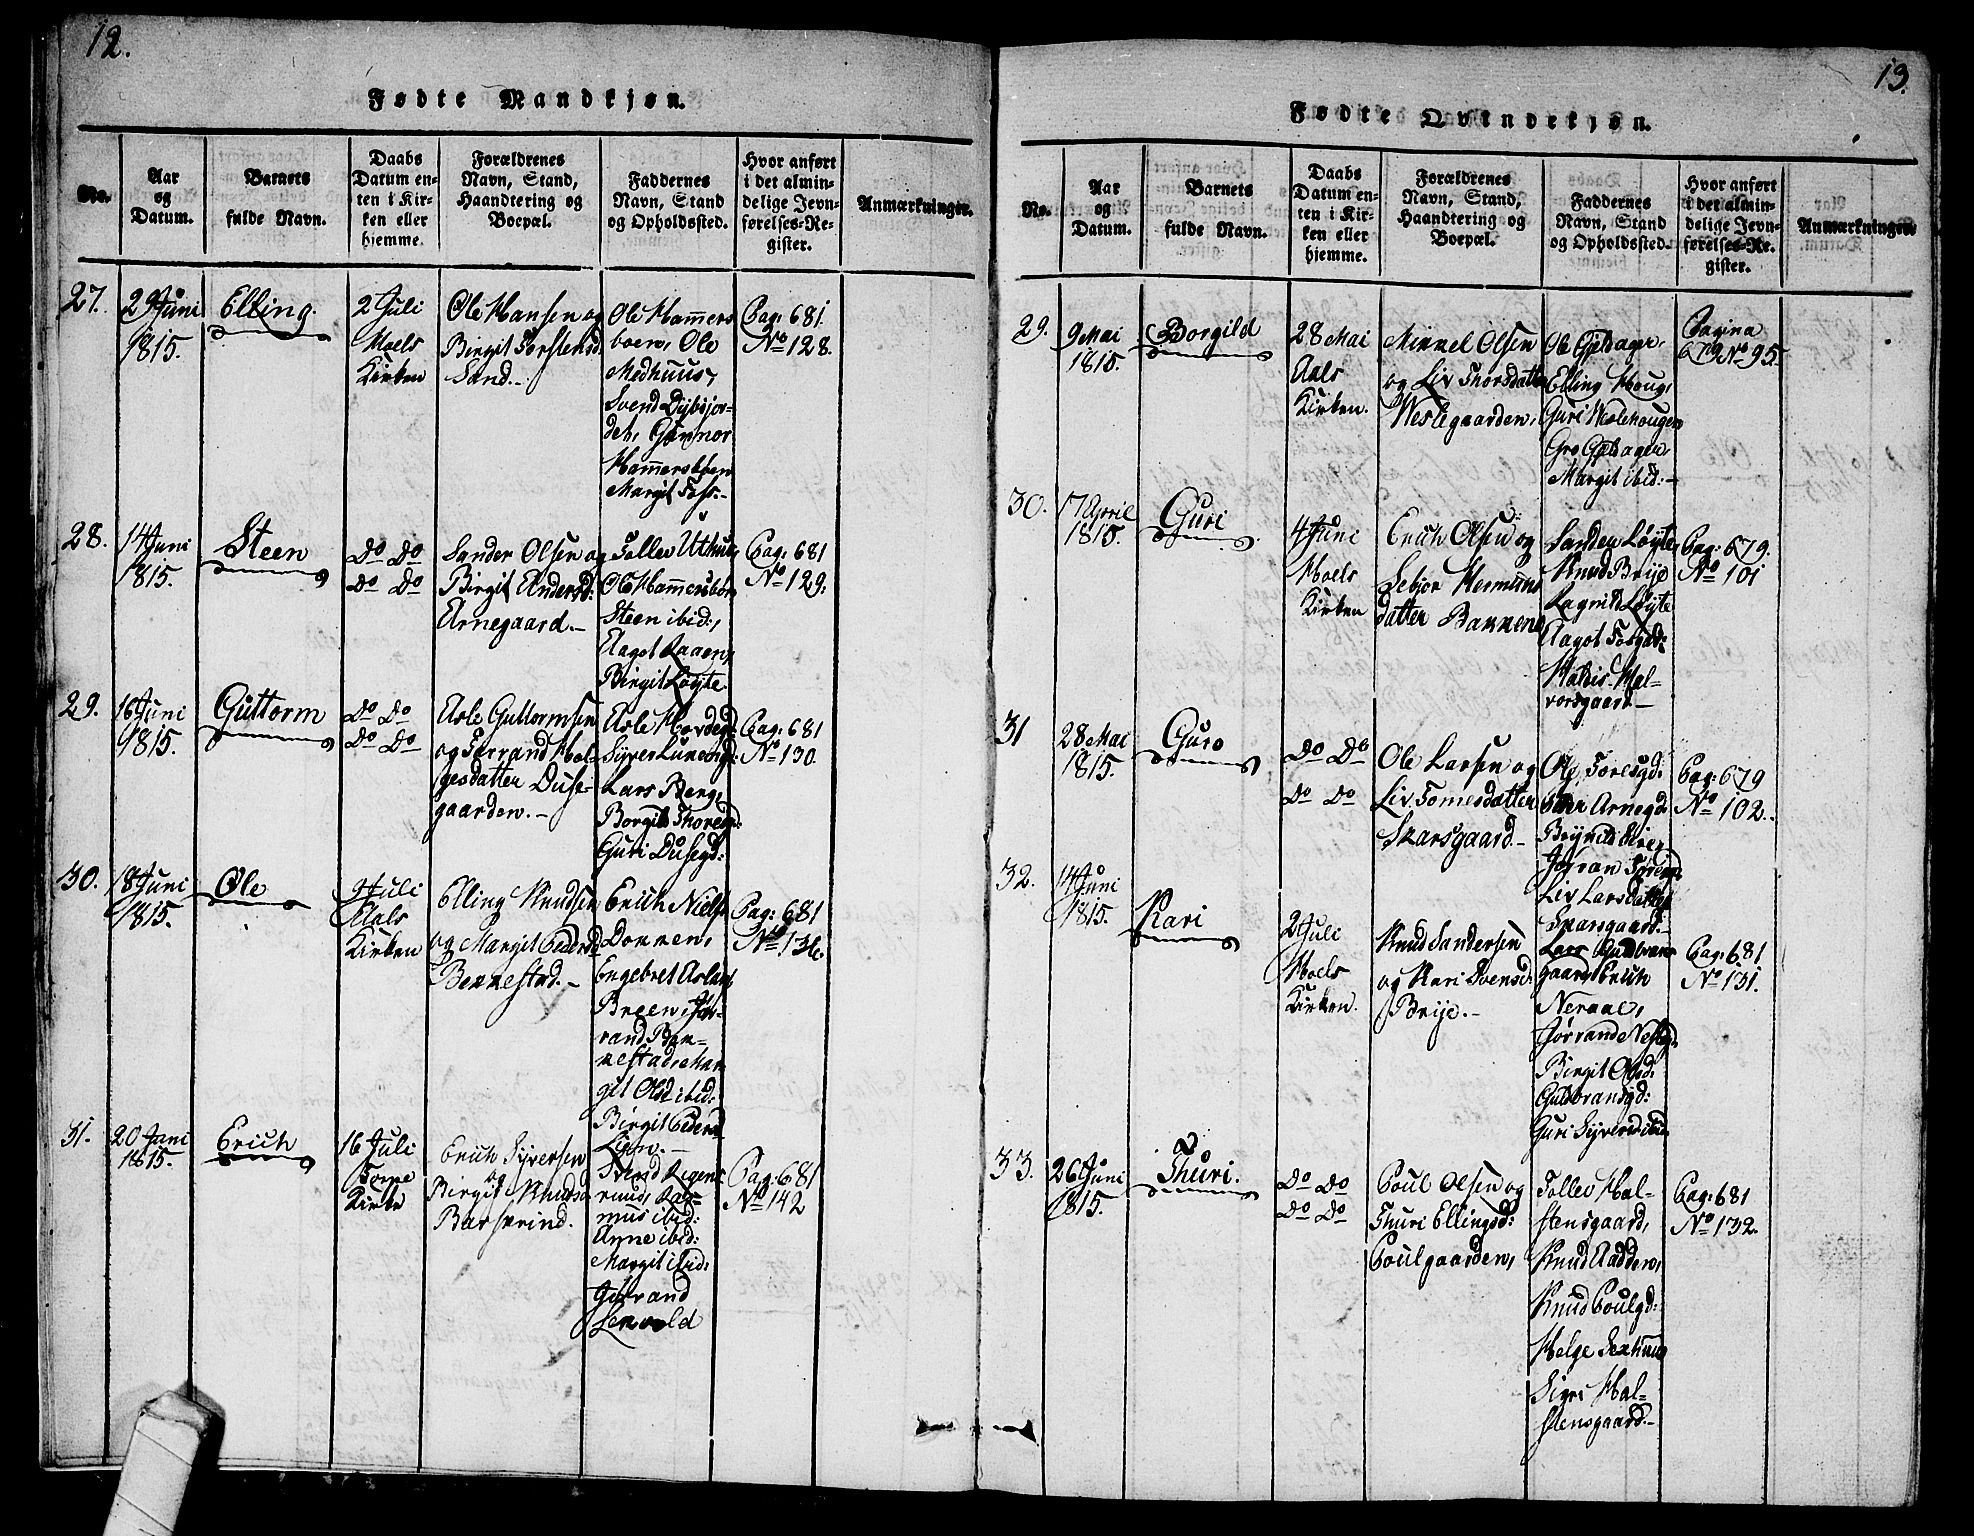 12.
Fødte Mandkjøn.
No.
Aar
og
Datum.
Barnets
fulde Navn.
Daabs
Datum en-
ten i Kir-
ken eller
hjemme.
Forældrenes
Navn, Stand,
Haandtering og
Boepæl.
Faddernes
Navn, Stand
og Opholdssted.
Hvor anført
i det almin-
delige Jevn-
førelses-Re-
gister.
Anmærkninger.
27.
29 Juni
1815.
Elling.
2 Juli
Hoels
Kirken
Ole Hansen og
Birgit Torstensd.
Sand.-
Ole Hammers
boen, Ole
Medhuus,
Svend Dybsjor-
det, Gunnor
Hammersboen
Margit Foss.-
Pag: 681
No 128.
28.
14 Juni
1815.
Steen
Do Do
Do Do
Sander Olsen og
Birgit Andersd:
Arnegaard.-
Tollev Uthuus
Ole Hammersboen
Steen ibid:,
Aagot Raaen,
Birgit Løyte
Pag: 681
No 129:
29.
16 Juni
1815.
Guttorm
Do Do
Do Do
Asle Guttormsen
og Jorrand Hel-
gesdatter Duse-
gaarden.-
Asle Hovdegd:
Syver
Lars Berg,
Borgild Thoresgd:
Guri Dusegd:
Pag: 681
No 130.
30.
18 Juni
1815.
Ole
9 Juli
Aals
Kirken
Elling Knudsen
og Margit Pedersd
Bennestad.-
Erich Niels
Dokken,
Engebret Aslach
Breen, Jør-
rand Ben-
nestad, Mar
git Olsd ibid:
Birgit Pedersd
Lien.-
Pag: 681
No 136.
31.
20 Juni
1815.
Erich
16 Juli
Torpe
Kirke
Erich Syversen
og
Birgit Knudsd
Barskrind.
Svend Rigens-
rund, Ras-
mus ibid:
Anne ibid:
Margit ibid:
Jørrand
Lenvold
Pag: 681
No 142
13.
Fødte Qvindekjøn.
No.
Aar
og
Datum.
Barnets
fulde Navn.
Daabs
Datum en-
ten i Kir-
ken eller
hjemme.
Forældrenes
Navn, Stand,
Haandtering og
Boepæl.
Faddernes
Navn, Stand
og Opholdssted.
Hvor anført
i det almin-
delige Jevn-
førelses-Re-
gister.
Anmærkninger.
29.
9 Mai
1815.
Borgild
28 Mai
Aals
Kirken.
Mikkel Olsen
og Liv Thorsdatter
Westegaarden,
Ole Opdager,
Elling Houg,
Guri Westehougen
Gro Opdager
Margit ibid:-
Pagina
679 No 95.
30.
17 April
1815.
Guri
4 Juni
Hoels
Kirken
Erich Olsen og
Sebjør Hermuns
datter Bakkene
Sander Løyte,
Knud Brye
Ragnild Løyte
Aagot Tofgad:
Haldis Hal-
vorsgaard-
Pag: 679.
No 101
31
28 Mai
1815.
Guro
Do Do
Do Do
Ole Larsen og
Liv Tomesdatter
Skarsgaard-
Ole Toresgd:
Steen Arnegd:
Brynild
Jørran Toresgd:
Liv Larsdatter
Skarsgaard.-
Pag: 679
No 102.
32.
14 Juni
1815.
Kari
2 Juli
Hoels
Kirken.
Knud Sandersen
og Kari Svensd:
Brye.-
Lars Guldbrans
gaard, Erich
Neraal,
Jørrand Nessegd:
Birgit Olsd:
Guldbransgd:
Guri Syversd ibid
Pag: 681
No 131.
33.
26 Juni
1815.
Thuri.
Do Do
Do Do
Poul Olsen og
Thuri Ellingsd:
Poulgaarden,
Tollev Hal-
stensgaard,
Knud Aadden,
Knud Poulgd:
Helge Sexhuus
Sigri Hal-
stensgaard.-
Pag: 681
No 132.